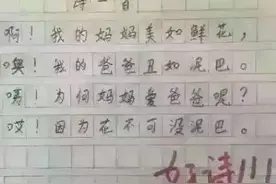 诗一首
啊！我的妈妈美如鲜花，
噢！我的爸爸丑如泥巴。
咦！为何妈妈爱爸爸呢？
哎！因为花不可没泥巴。
好诗!!!